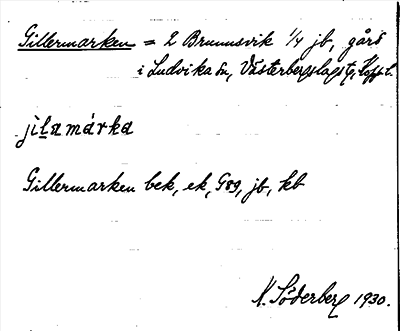 Gillermarken = 2 Brunnsvik 1/4 jb, gård
i Ludvika sn, Västerbergslags tg, Kopp. l.
jìlamárka
Gillermarken bek, ek, G89, jb, kb
N. Söderberg 1930.